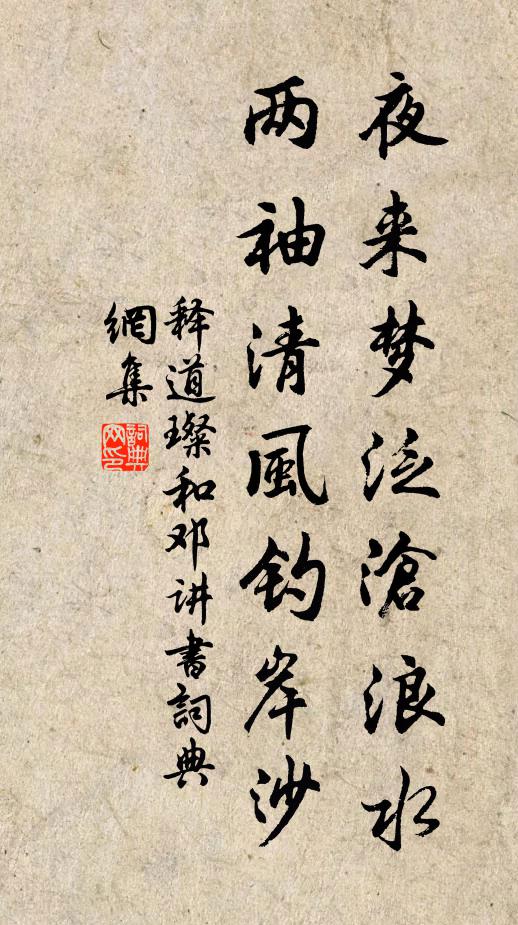 夜来梦泛滄浪水
两袖清風钓岸沙
释道璨和邓讲書詞典
網集
詞典
网印